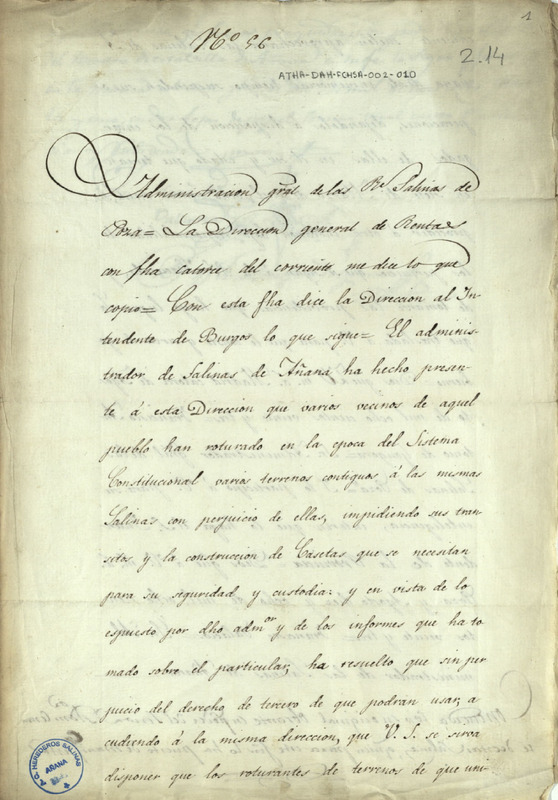 1
Nº 56
2.14
ATHA-DAH-FCHSA-002-010
Administracion gral de las Rs Salinas de
Poza= La Direccion general de Rentas
con fha catorce del corriente me dice lo que
copio= Con esta fha dice la Direccion al In-
tendente de Burgos lo que sigue= El adminis-
trador de Salinas de Añana ha hecho presen-
te á esta Direccion que varios vecinos de aquel
pueblo han roturado en la epoca del Sistema
Constitucional varios terrenos contiguos á las mismas
Salinas con perjuicio de ellas, impidiendo sus tran-
sitos y la construccion de Casetas que se necesitan
para su seguridad y custodia: y en vista de lo
espuesto por dho admor y de los informes que ha to
mado sobre el particular, ha resuelto que sin per
juicio del derecho de tercero de que podran usar, a
cudiendo á la misma direccion, que V. S. se sirva
disponer que los roturantes de terrenos de que uni-
HEREDEROS SALINAS
AÑANA